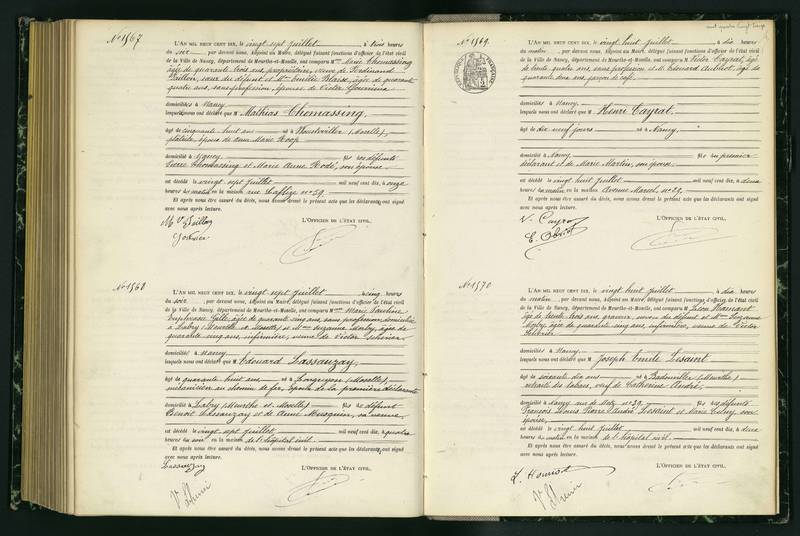 N° 1567
L'AN MIL NEUF CENT DIX, le vingt sept juillet à trois heures
du soir, par devant nous, Adjoint au Maire, délégué faisant fonctions d'officier de l'état civil
de la Ville de Nancy, département de Meurthe-et-Moselle, ont comparu Mme Marie Themassing
âgée de quarante trois ans, propriétaire, veuve de Ferdinand
sœur du défunt et Mme Emélie Blaise, âgée de quarante
quatre ans, sans profession, épouse de Victor
domiciliés à Nancy
lesquels nous ont déclaré que M Mathias Themassing,
âgé de cinquante huit ans né à (Moselle),
époux de dame Marie Koop
domicilié à Nancy fils des défunts
Pierre Themassing et Marie Anne Rodé, son épouse
est décédé le vingt sept juillet mil neuf cent dix, à onze
heures du matin en la maison rue Laflize n° 29
Et après nous être assuré du décès, nous avons dressé le présent acte que les déclarants ont signé
avec nous après lecture.
L'OFFICIER DE L'ÉTAT CIVIL,
N° 1568
L'AN MIL NEUF CENT DIX, le vingt sept juillet à cinq heures
du soir, par devant nous, Adjoint au Maire, délégué faisant fonctions d'officier de l'état civil
de la Ville de Nancy, département de Meurthe-et-Moselle, ont comparu Mme Marie Pauline
Euphrasie Gille, âgée de quarante cinq ans, sans profession, domiciliée
à Labry (Meurthe et Moselle) et Mme Suzanne Maly, âgée de
quarante cinq ans, infirmière, veuve de Victor
domiciliés à Nancy
lesquels nous ont déclaré que M Edouard Lassauzay,
âgé de quarante huit ans né à Longuyon (Moselle),
mécanicien au chemin de fer, époux de la première déclarante
domicilié à Labry (Meurthe et Moselle) fils de défunt
Benoit Lassauzay et de Anne Musquin, sa veuve,
est décédé le vingt sept juillet mil neuf cent dix, à quatre
heures du soir en la maison de l'hôpital civil.
Et après nous être assuré du décès, nous avons dressé le présent acte que les déclarants ont signé
avec nous après lecture.
Lassauzay
L'OFFICIER DE L'ÉTAT CIVIL,
N° 1569
L'AN MIL NEUF CENT DIX, le vingt huit juillet à dix heures
du matin, par devant nous, Adjoint au Maire, délégué faisant fonctions d'officier de l'état civil
de la Ville de Nancy, département de Meurthe-et-Moselle, ont comparu M Victor Cayrat, âgé
de trente quatre ans, sans profession et Edouard Aubriot, âgé de
quarante deux ans, garçon de café
domiciliés à Nancy
lesquels nous ont déclaré que M Henri Cayrat.
âgé de dix neuf jours né à Nancy.
domicilié à Nancy fils du premier
déclarant & de Marie Martin, son épouse
est décédé le vingt huit juillet mil neuf cent dix, à deux
heures du matin, en la maison Avenue Marcel, n° 29.
Et après nous être assuré du décès, nous avons dressé le présent acte que les déclarants ont signé
avec nous après lecture.
L'OFFICIER DE L'ÉTAT CIVIL,
N° 1570
L'AN MIL NEUF CENT DIX, le vingt huit juillet à dix heures
du matin, par devant nous, Adjoint au Maire, délégué faisant fonctions d'officier de l'état civil
de la Ville de Nancy, département de Meurthe-et-Moselle, ont comparu M
âgé de trente trois ans, graveur, neveu du défunt et Mme Suzanne
Maly, âgée de quarante cinq ans, infirmière, veuve de Victor
domiciliés à Nancy
lesquels nous ont déclaré que M Joseph Emile Lesaint
âgé de soixante dix ans né à Badonviller (Meurthe),
retraité des tabacs, veuf de Catherine André,
domicilié à Nancy rue de Metz n° 29. fils des défunts
François Louis Pierre André Lesaint et Marie son
épouse,
est décédé le vingt huit juillet mil neuf cent dix, à deux
heures du matin en la maison de l'hôpital civil.
Et après nous être assuré du décès, nous avons dressé le présent acte que les déclarants ont signé
avec nous après lecture.
L'OFFICIER DE L'ÉTAT CIVIL,